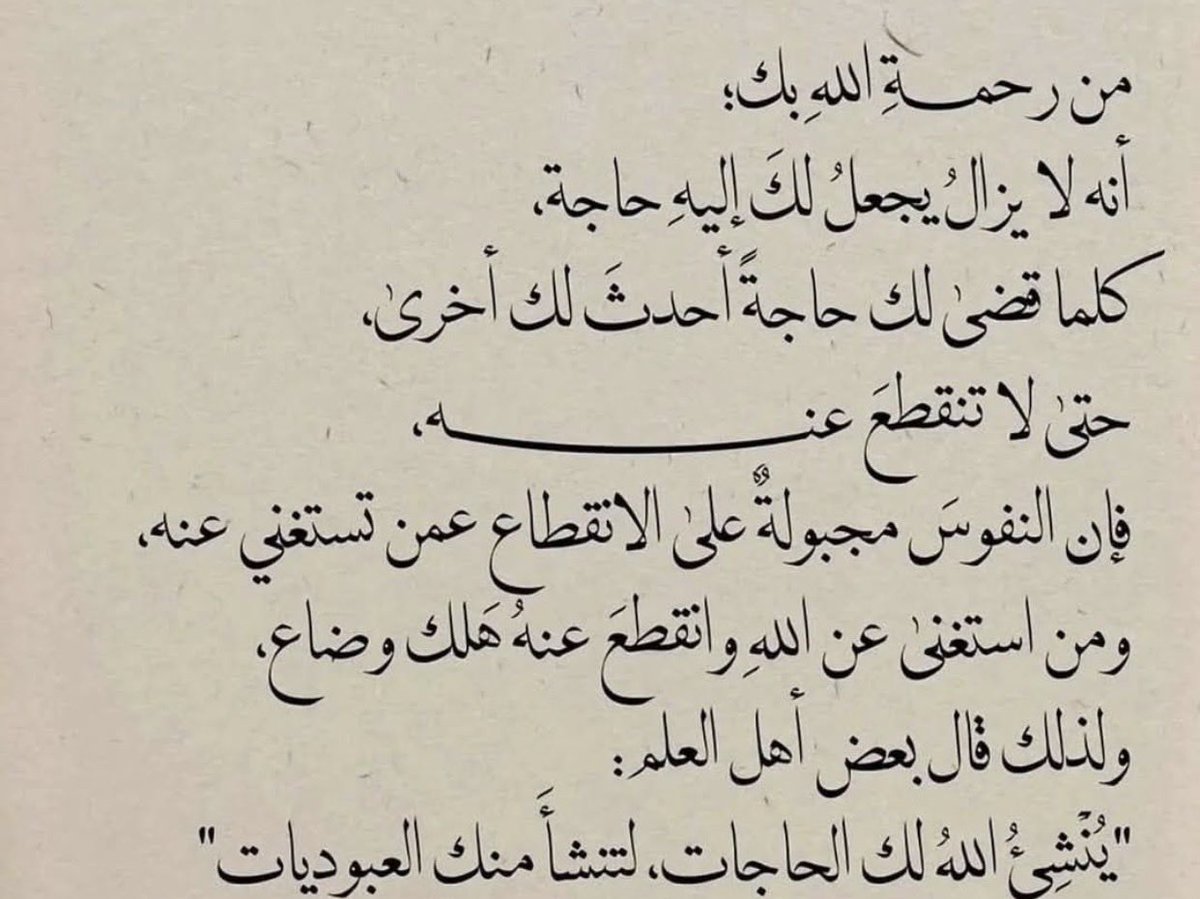 من رحمـــةِ اللهِ بك؛
أنه لا يزالُ يجعلُ لكَ إليهِ حاجة،
كلما قضىٰ لك حاجةً أحدثَ لك أخرىٰ،
حتىٰ لا تنقطعَ عنـــــــــــه،
فإن النفوسَ مجبولةٌ علىٰ الانقطاع عمن تستغني عنه،
ومن استغنىٰ عن اللهِ وانقطعَ عنهُ هَلك وضاع،
ولذلك قال بعض أهل العلم:
"يُنْشِئُ اللهُ لك الحاجات، لتنشأَ منك العبوديات"